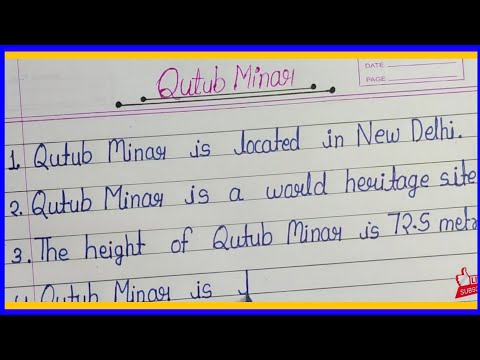 DATE
PAGE
Qutub Minar
1. Qutub Minar is located in New Delhi.
2. Qutub Minar is a world heritage site
3. The height of Qutub Minar is 72.5 metr
4. Qutub Minar is
SUBSC